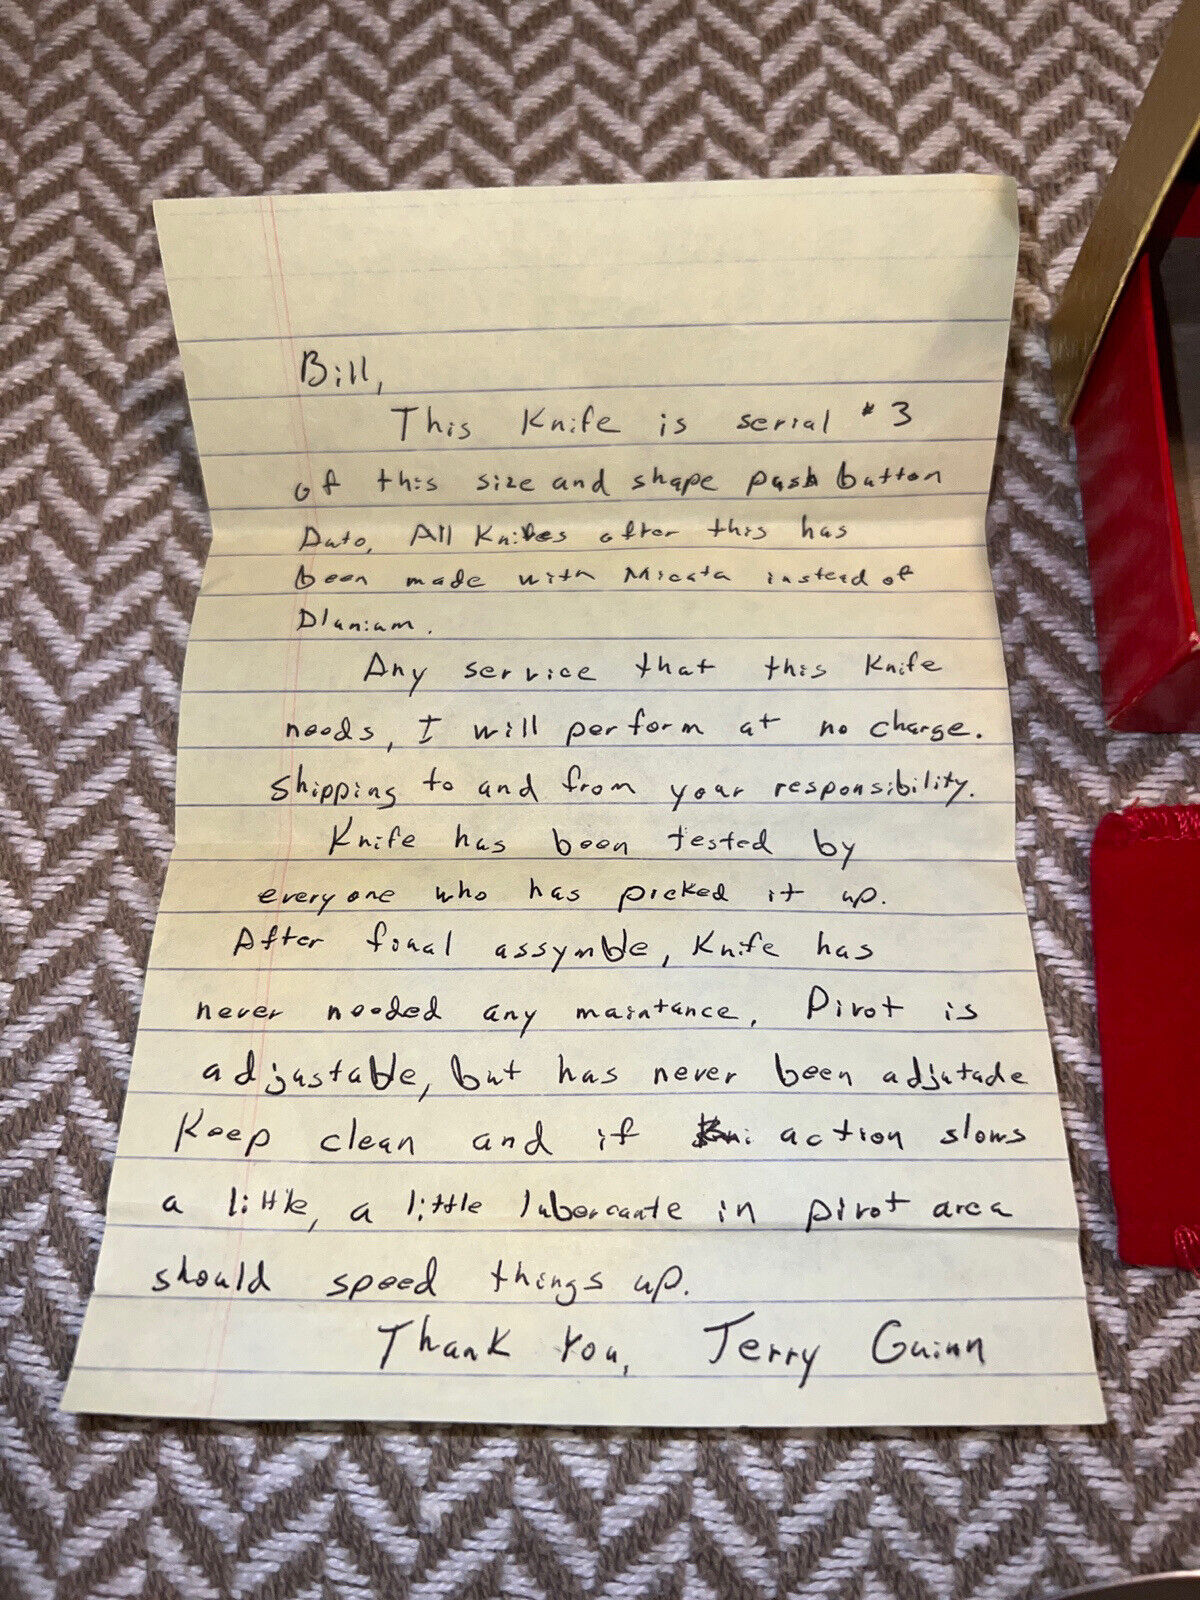 Bill,
This Knife is serial # 3
of this size and shape push button
Auto. All Knives after this has
been made with Micata instead of
Dlanium.
Any service that this Knife
needs, I will perform at no charge.
Shipping to and from your responsibility.
Knife has been tested by
everyone who has picked it up.
After final assymble, Knife has
never needed any maintance. Pivot is
adjustable, but has never been adjutade
Keep clean and if action slows
a little, a little lubercante in pivot area
should speed things up.
Thank You, Terry Guinn